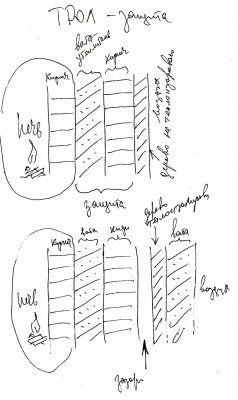 ТРОЛ - защита
кирпич
вата
утеплитель
кирпич
воздух
дерево не
печь
защита
дерево
кирпич
вата
вата
печь
воздух
зазор